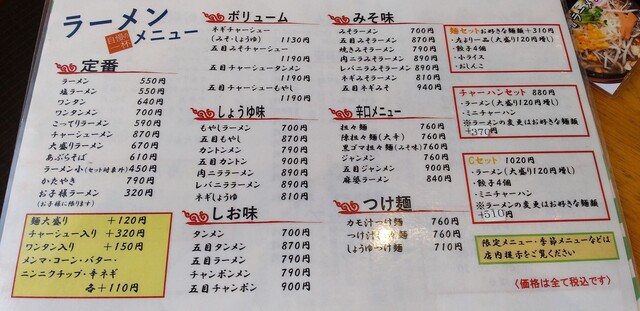 ラーメン
自慢の一杯
メニュー
定番
ラーメン 550円
塩ラーメン 550円
ワンタン 640円
ワンタンメン 700円
こってりラーメン 590円
チャーシューメン 870円
大盛りラーメン 670円
あぶらそば 610円
ラーメン小(セット対象外)450円
かたやき 790円
お子様ラーメン 320円
(お子様に限ります)
麺大盛り +120円
チャーシュー入り +320円
ワンタン入り +150円
メンマ・コーン・バター・
ニンニクチップ・辛ネギ
各+110円
ボリューム
ネギチャーシュー
(みそ・しょうゆ) 1130円
五目みそチャーシュー
1190円
五目チャーシュータンメン
1190円
五目チャーシューもやし
1190円
しょうゆ味
もやしラーメン 700円
五目もやし 870円
カントンメン 790円
五目カントン 900円
肉ニララーメン 890円
レバニララーメン 890円
ネギしょうゆ 810円
しお味
タンメン 700円
五目タンメン 870円
五目ラーメン 790円
チャンポンメン 790円
五目チャンポン 900円
みそ味
みそラーメン 700円
五目みそラーメン 870円
焼きみそラーメン 790円
肉ニラみそラーメン 890円
レバニラみそラーメン 890円
ネギみそラーメン 810円
五目ネギみそ 940円
辛口メニュー
担々麺 760円
陳担々麺(大辛) 760円
黒ゴマ担々麺(みそ味) 760円
ジャンメン 760円
五目ジャンメン 930円
麻婆ラーメン 840円
つけ麺
カモ汁つけ麺 760円
つけ汁つけ麺 760円
しょうゆつけ麺 710円
麺セット お好きな麺類+310円
・たより一品(大盛り120円増し)
・餃子4個
・小ライス
・おしんこ
チャーハンセット 880円
・ラーメン(大盛り120円増し)
・ミニチャーハン
※ラーメンの変更はお好きな麺類
+370円
Cセット 1020円
・ラーメン(大盛り120円増し)
・餃子4個
・ミニチャーハン
※ラーメンの変更はお好きな麺類
+510円
限定メニュー・季節メニューなどは
店内提示をご覧ください
〈価格は全て税込です〉